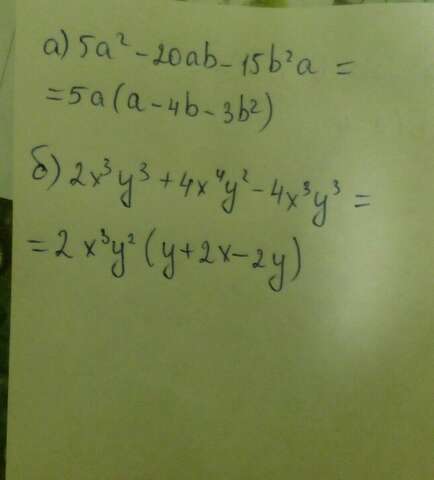 а) 5a² - 20ab - 15b²a =
= 5a(a - 4b - 3b²)
б) 2x³y³ + 4x⁴y² - 4x³y³ =
= 2x³y² (y + 2x - 2y)